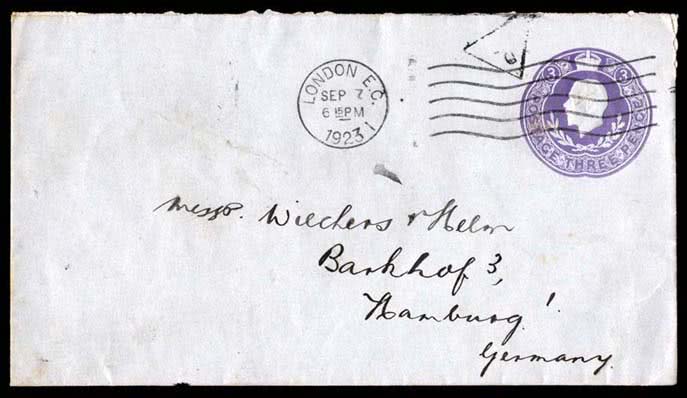 LONDON E.C.
SEP 7
6 15 PM
1923
1
POSTAGE THREE PENCE
3 3
Messrs. Wiechers & Helm
Barkhof 3,
Hamburg!
Germany.